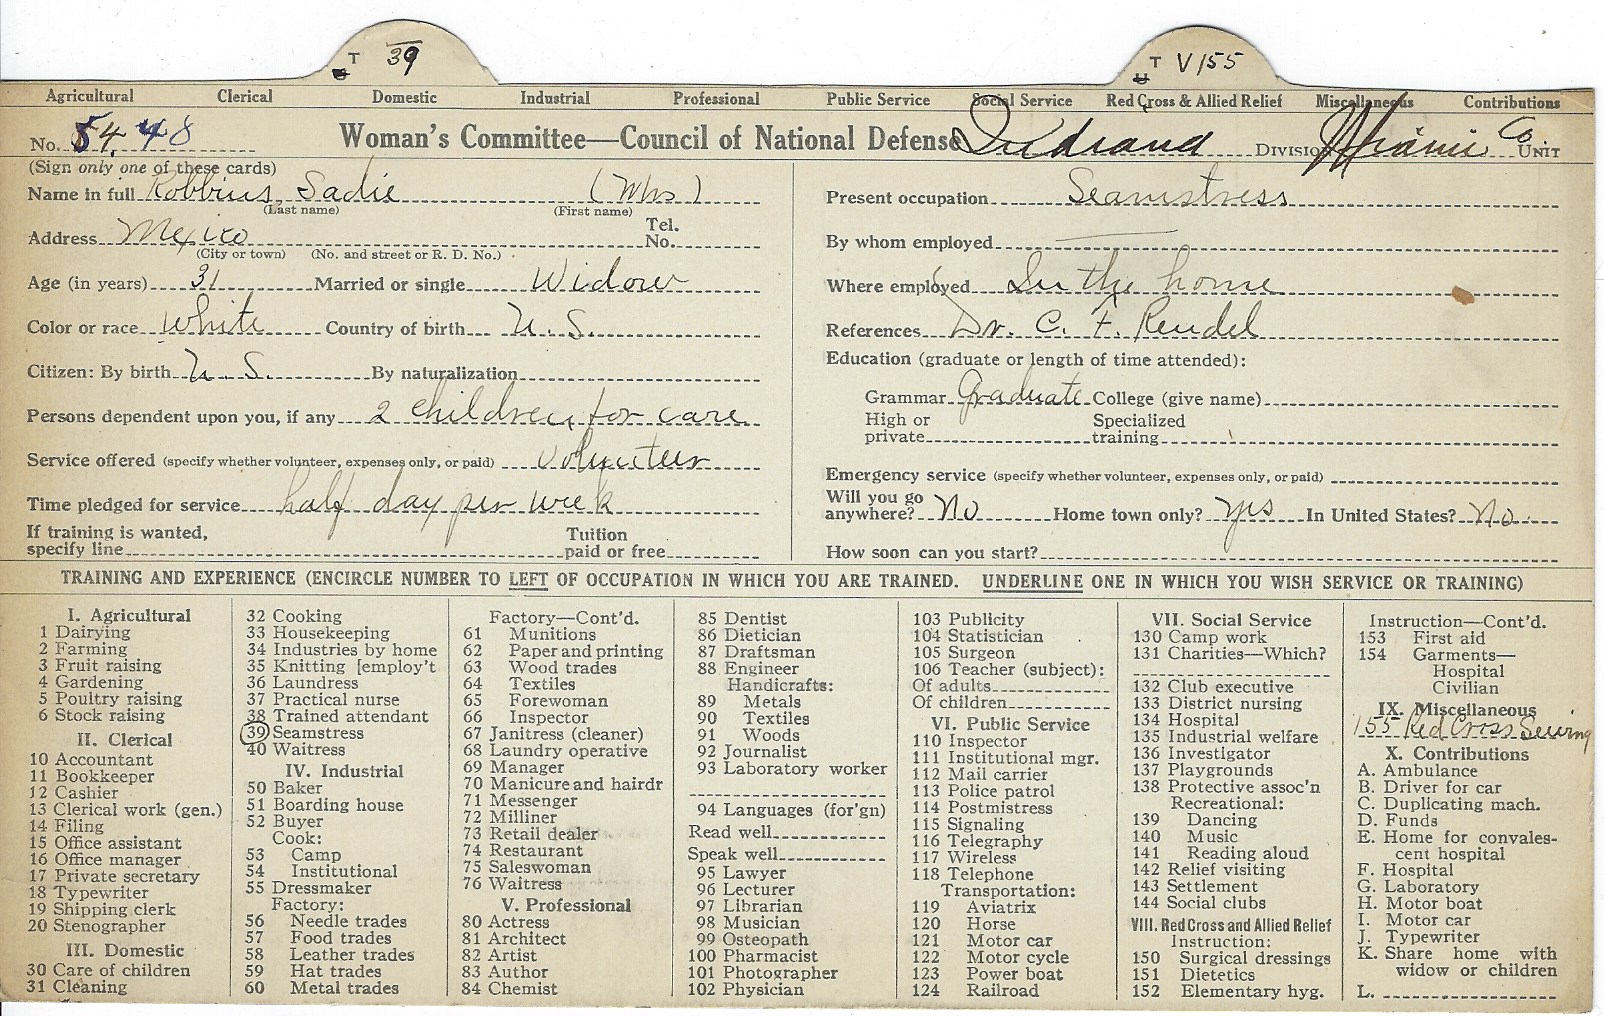 T 39
T V155
Agricultural Clerical Domestic Industrial Professional Public Service Social Service Red Cross & Allied Relief Miscellaneous Contributions
No. 54 48 Woman's Committee—Council of National Defense Indiana Division Miami Co. Unit
(Sign only one of these cards)
Name in full Robbins Sadie (Mrs)
(Last name) (First name)
Address Mexico Tel. No.
(City or town) (No. and street or R. D. No.)
Age (in years) 31 Married or single Widow
Color or race White Country of birth U. S.
Citizen: By birth U. S. By naturalization
Persons dependent upon you, if any 2 children for care
Service offered (specify whether volunteer, expenses only, or paid) Volunteer
Time pledged for service half day per week
If training is wanted,
specify line Tuition paid or free
Present occupation Seamstress
By whom employed
Where employed In the home
References Dr. C. F. Rendel
Education (graduate or length of time attended):
Grammar Graduate College (give name)
High or private Specialized training
Emergency service (specify whether volunteer, expenses only, or paid)
Will you go
anywhere? No Home town only? Yes In United States? No
How soon can you start?
TRAINING AND EXPERIENCE (ENCIRCLE NUMBER TO LEFT OF OCCUPATION IN WHICH YOU ARE TRAINED. UNDERLINE ONE IN WHICH YOU WISH SERVICE OR TRAINING)
I. Agricultural
1 Dairying
2 Farming
3 Fruit raising
4 Gardening
5 Poultry raising
6 Stock raising
II. Clerical
10 Accountant
11 Bookkeeper
12 Cashier
13 Clerical work (gen.)
14 Filing
15 Office assistant
16 Office manager
17 Private secretary
18 Typewriter
19 Shipping clerk
20 Stenographer
III. Domestic
30 Care of children
31 Cleaning
32 Cooking
33 Housekeeping
34 Industries by home
35 Knitting [employ't
36 Laundress
37 Practical nurse
38 Trained attendant
39 Seamstress
40 Waitress
IV. Industrial
50 Baker
51 Boarding house
52 Buyer
Cook:
53 Camp
54 Institutional
55 Dressmaker
Factory:
56 Needle trades
57 Food trades
58 Leather trades
59 Hat trades
60 Metal trades
Factory—Cont'd.
61 Munitions
62 Paper and printing
63 Wood trades
64 Textiles
65 Forewoman
66 Inspector
67 Janitress (cleaner)
68 Laundry operative
69 Manager
70 Manicure and hairdr
71 Messenger
72 Milliner
73 Retail dealer
74 Restaurant
75 Saleswoman
76 Waitress
V. Professional
80 Actress
81 Architect
82 Artist
83 Author
84 Chemist
85 Dentist
86 Dietician
87 Draftsman
88 Engineer
Handicrafts:
89 Metals
90 Textiles
91 Woods
92 Journalist
93 Laboratory worker
94 Languages (for'gn)
Read well
Speak well
95 Lawyer
96 Lecturer
97 Librarian
98 Musician
99 Osteopath
100 Pharmacist
101 Photographer
102 Physician
103 Publicity
104 Statistician
105 Surgeon
106 Teacher (subject):
Of adults
Of children
VI. Public Service
110 Inspector
111 Institutional mgr.
112 Mail carrier
113 Police patrol
114 Postmistress
115 Signaling
116 Telegraphy
117 Wireless
118 Telephone
Transportation:
119 Aviatrix
120 Horse
121 Motor car
122 Motor cycle
123 Power boat
124 Railroad
VII. Social Service
130 Camp work
131 Charities—Which?
132 Club executive
133 District nursing
134 Hospital
135 Industrial welfare
136 Investigator
137 Playgrounds
138 Protective assoc'n
Recreational:
139 Dancing
140 Music
141 Reading aloud
142 Relief visiting
143 Settlement
144 Social clubs
VIII. Red Cross and Allied Relief
Instruction:
150 Surgical dressings
151 Dietetics
152 Elementary hyg.
Instruction—Cont'd.
153 First aid
154 Garments—
Hospital
Civilian
IX. Miscellaneous
155 Red Cross Sewing
X. Contributions
A. Ambulance
B. Driver for car
C. Duplicating mach.
D. Funds
E. Home for convales-
cent hospital
F. Hospital
G. Laboratory
H. Motor boat
I. Motor car
J. Typewriter
K. Share home with
widow or children
L.